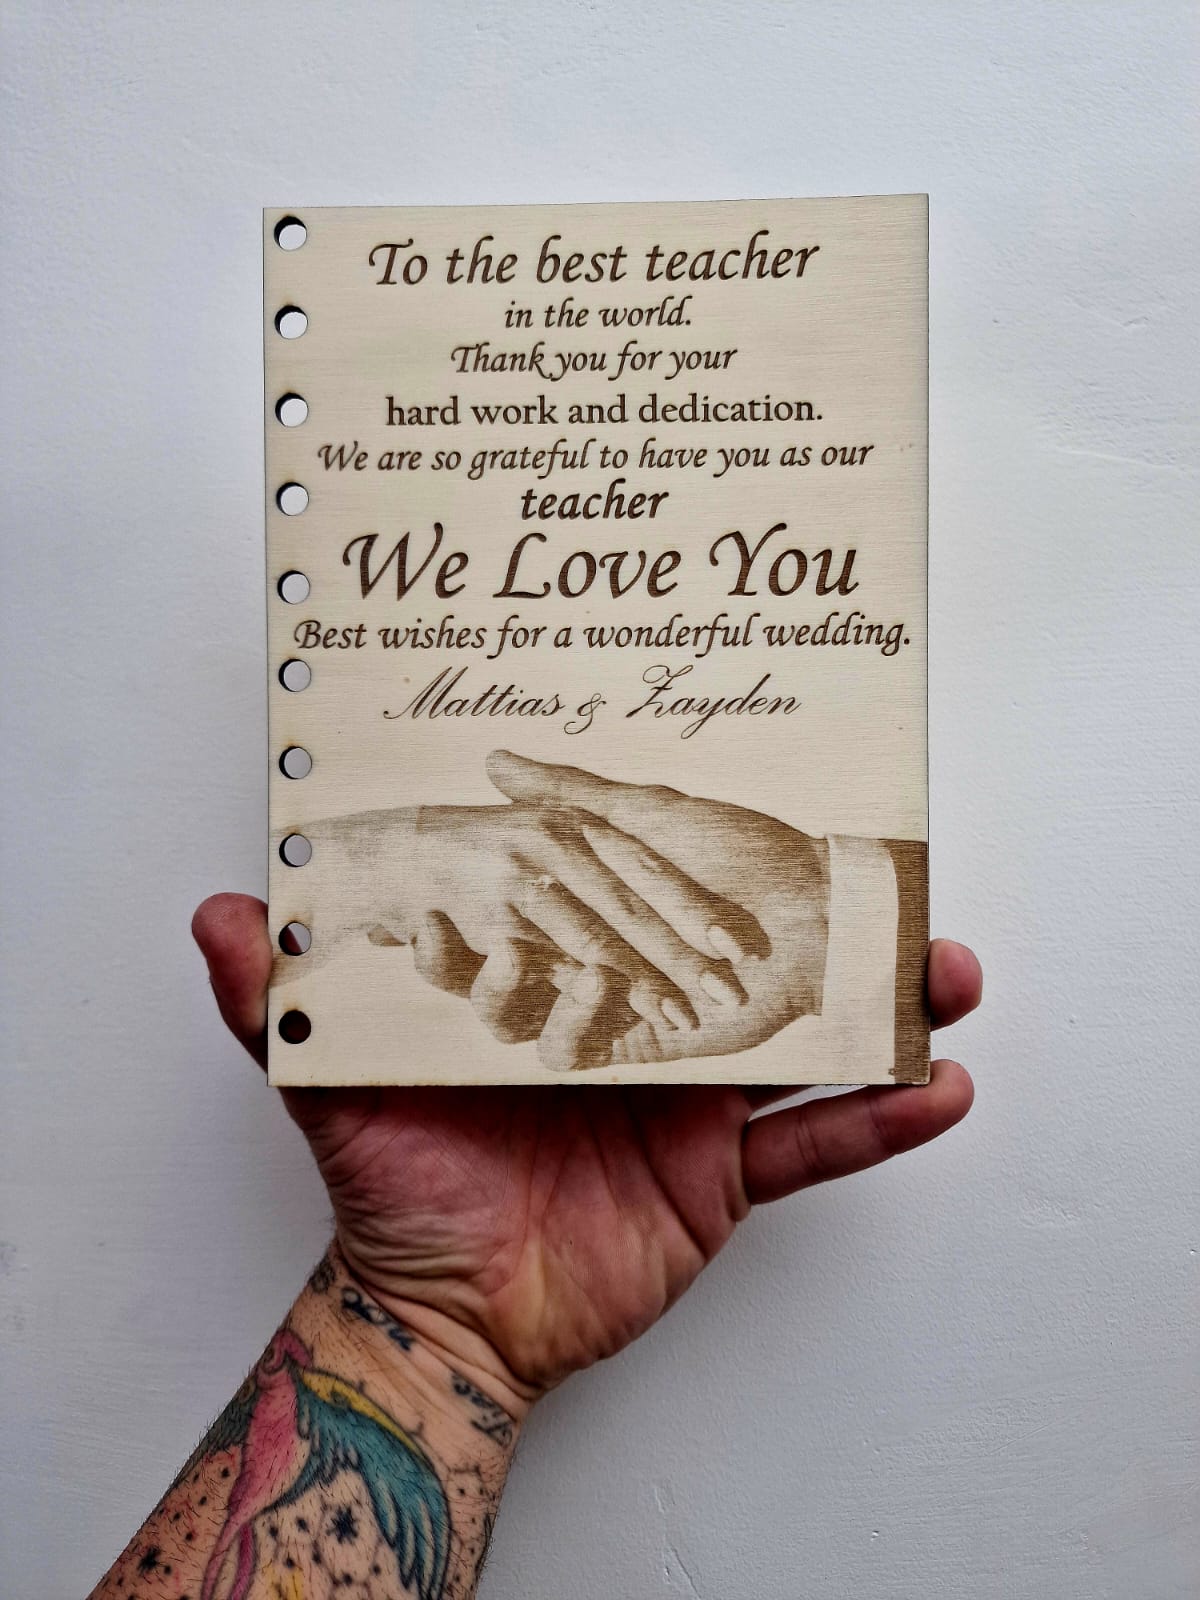 To the best teacher
in the world.
Thank you for your
hard work and dedication.
We are so grateful to have you as our
teacher
We Love You
Best wishes for a wonderful wedding.
Mattias & Zayden